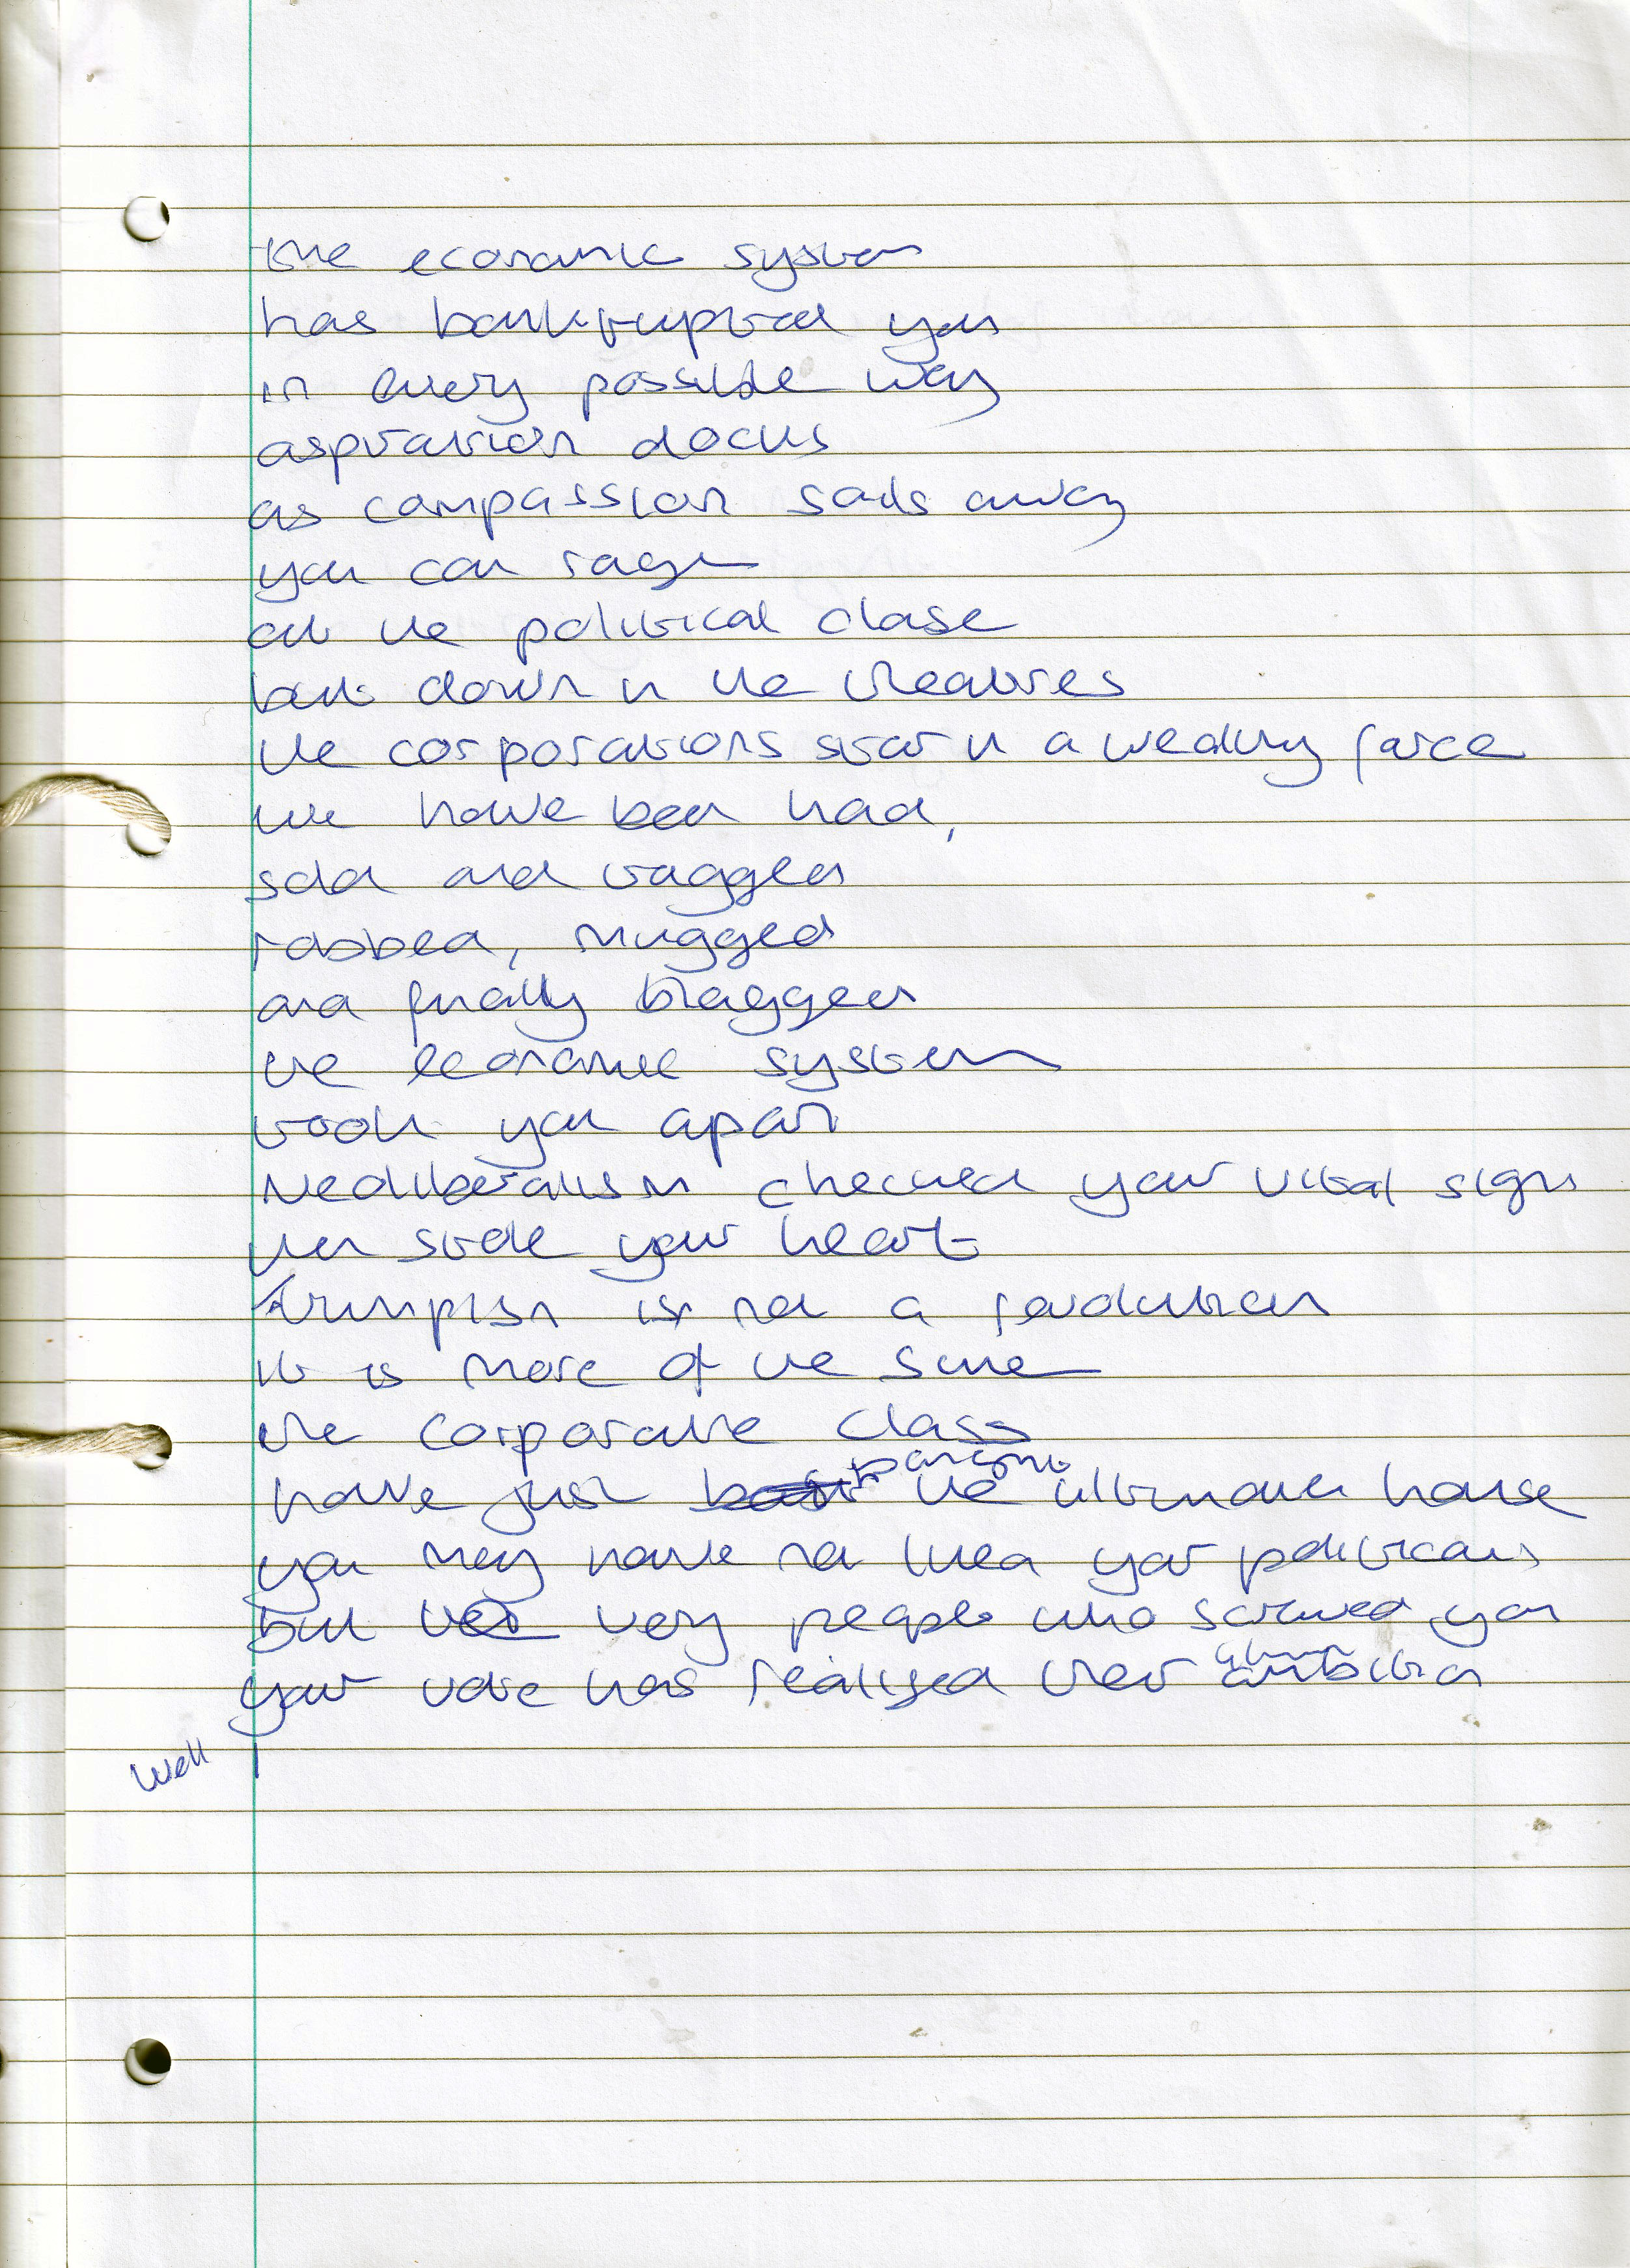 the economic system
has bankrupted you
in every possible way
aspiration docks
as compassion sails away
you can rage
at the political class
but down in the theatres
the corporations star in a wealthy farce
we have been had,
sold and tagged
robbed, mugged
and finally bragged
the economic system
took you apart
Neoliberalism checked your vital signs
then stole your heart
trumpism is not a revolution
it is more of the same
the corporate class
have just the ultimate house
you may have not liked your politicians
but the very people who screwed you
your vote has realised their ambition
well